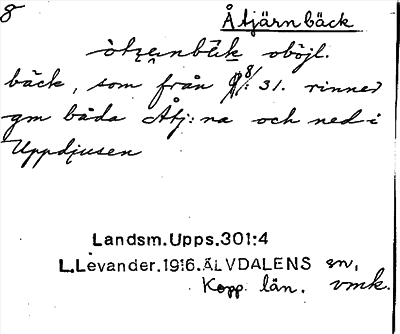 8
Åtjärnbäck
òtȩanbäk oböjl.
bäck, som från 8/: 31. rinner
gm båda Åtj:na och ned i
Uppdjusen
Landsm.Upps.301:4
L.Levander.1916.ÄLVDALENS sn,
Kopp. län. vmk.